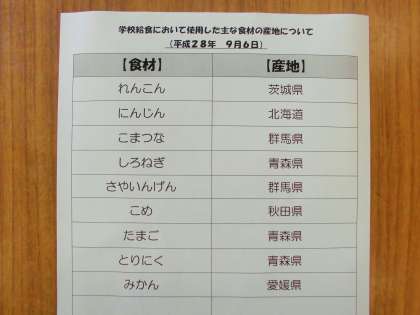 学校給食において使用した主な食材の産地について
（平成２８年　９月６日）
【食材】　【産地】
れんこん　茨城県
にんじん　北海道
こまつな　群馬県
しろねぎ　青森県
さやいんげん　群馬県
こめ　秋田県
たまご　青森県
とりにく　青森県
みかん　愛媛県